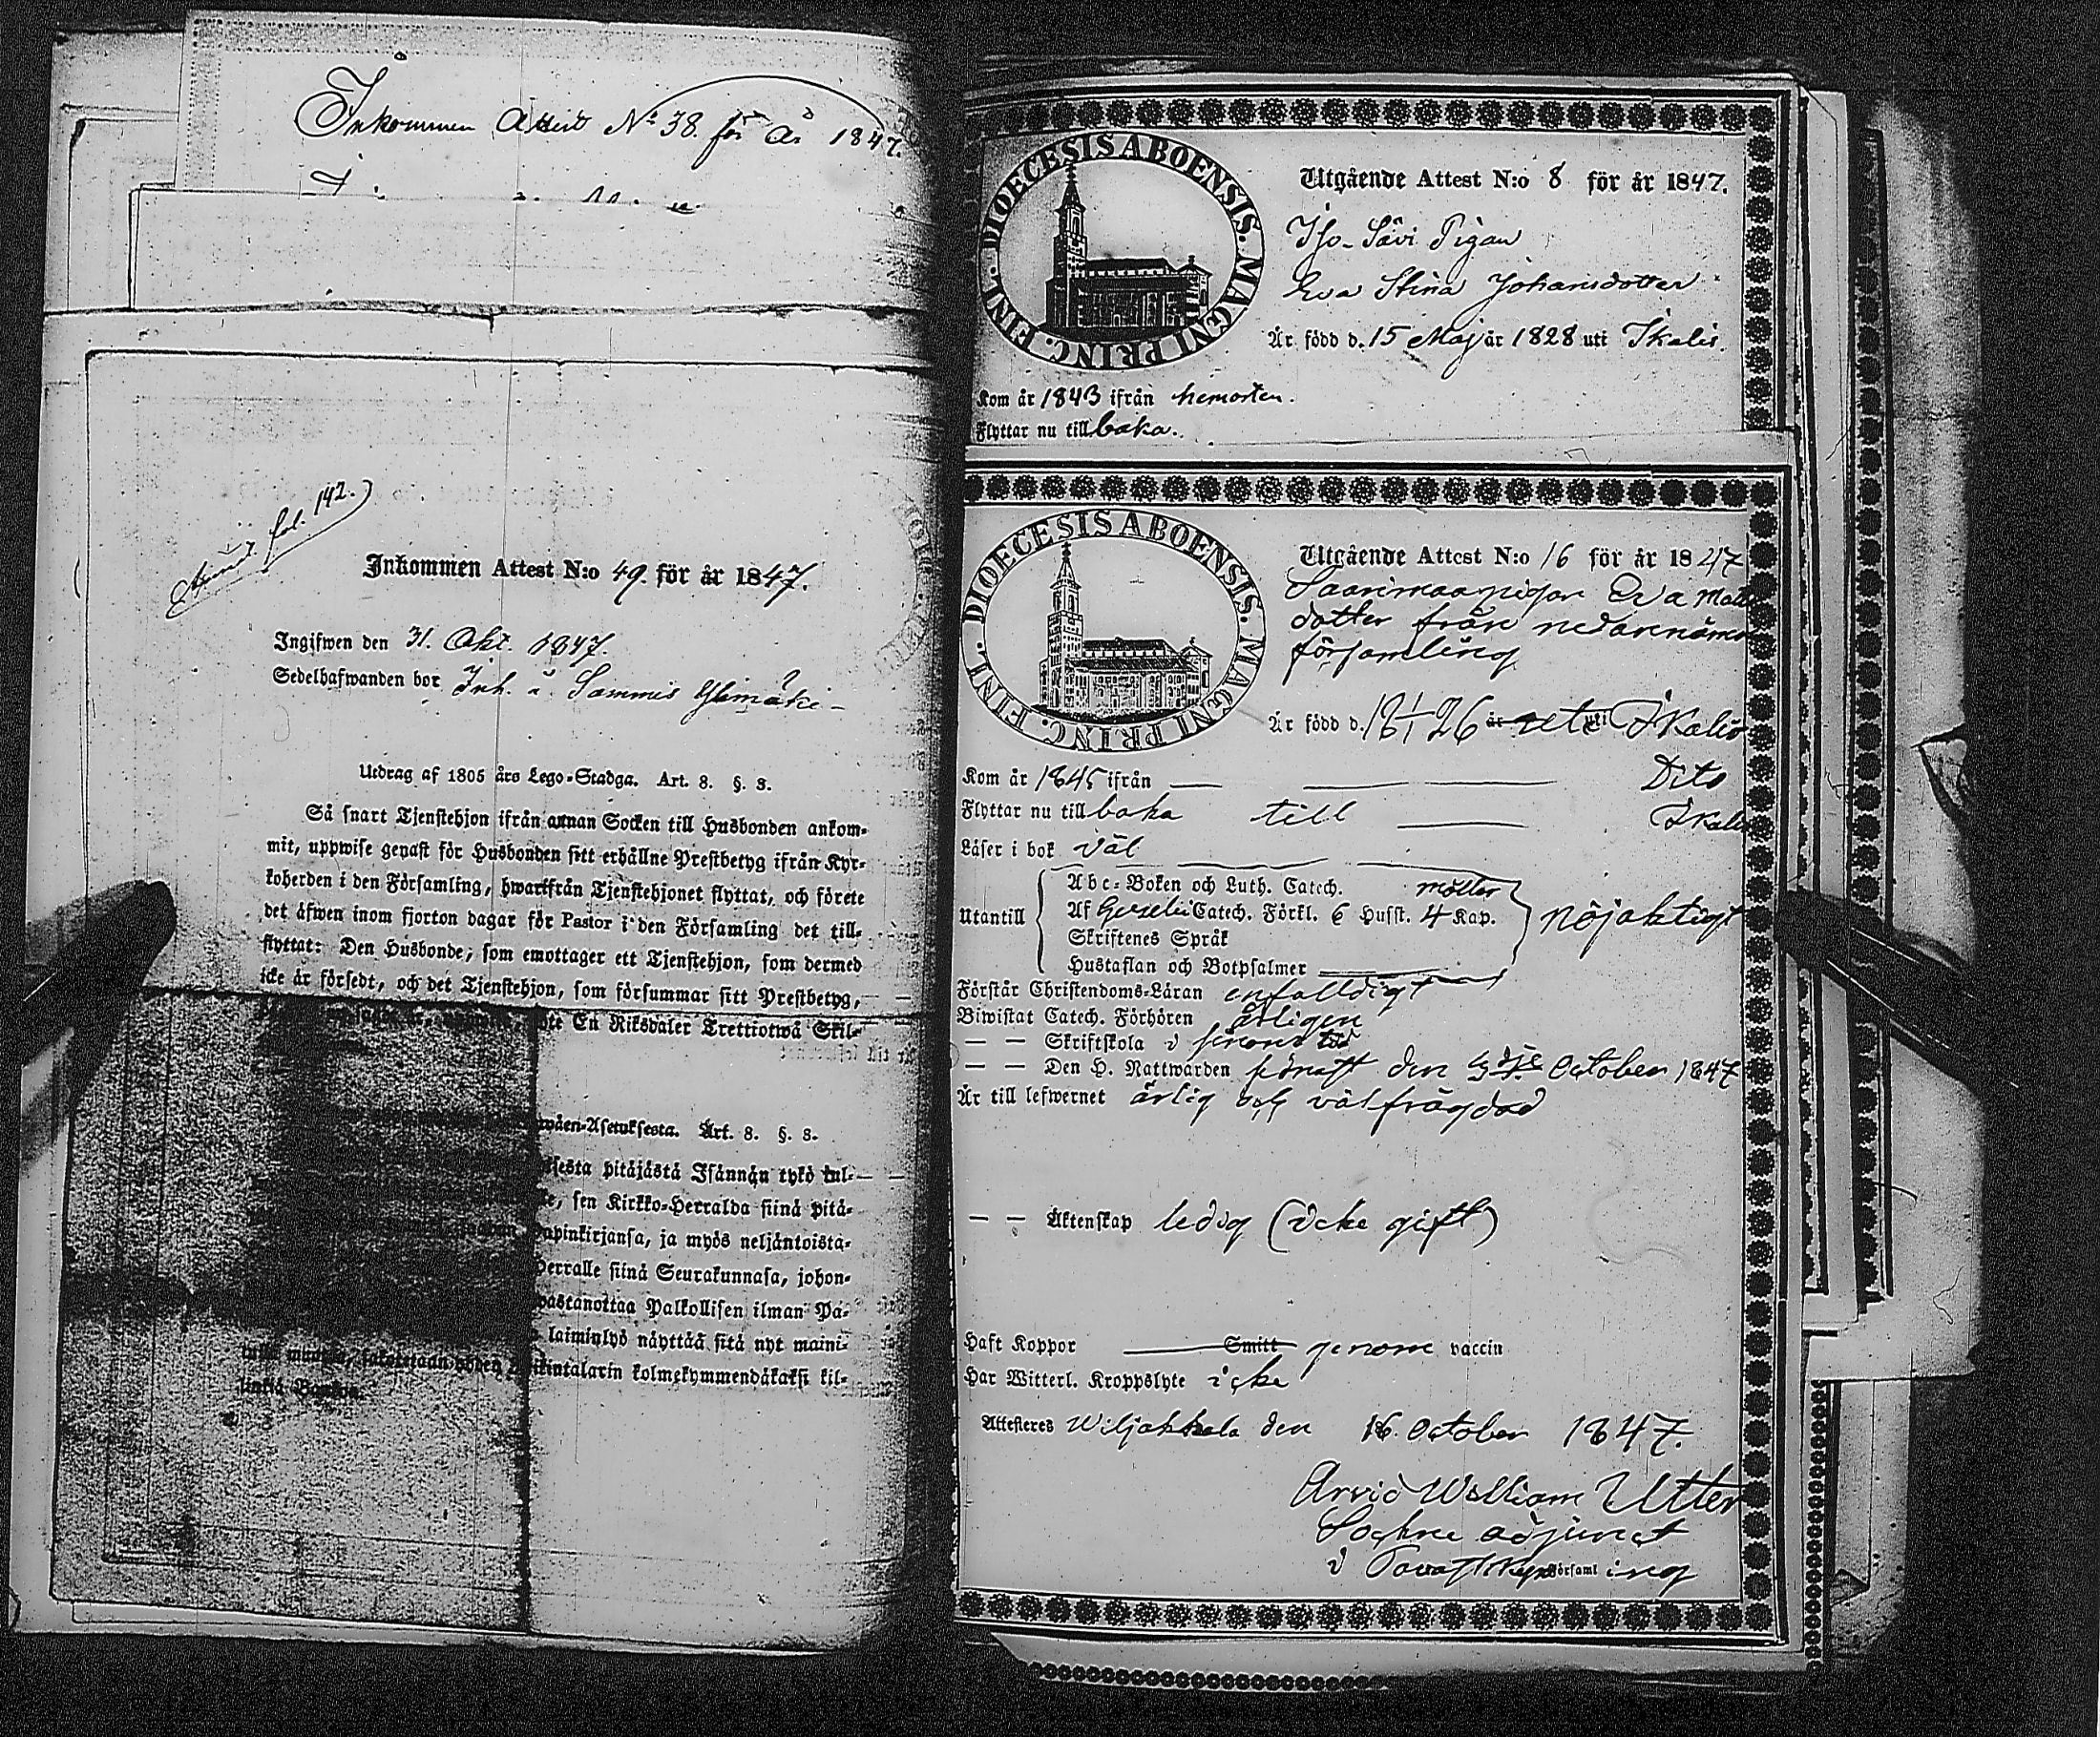 Inkommen Attest No 38. för År 1847.
fol. 142.
Inkommen Attest N:o 49. för år 1847.
Ingifwen den 31. Okt. 1847.
Sedelhafwanden bor Inh. å Sammis Ylimäki
Utdrag af 1805 års Lego-Stadga. Art. 8. §. 3.
Så snart Tjenstehjon ifrån annan Socken till Husbonden ankom-
mit, uppwise genast för Husbonden sitt erhållne Prestbetyg ifrån Kyr-
koherden i den Församling, hwartfrån Tjenstehjonet flyttat, och förete
det äfwen inom fjorton dagar för Pastor i den Församling det till-
flyttat: Den Husbonde, som emottager ett Tjenstehjon, som dermed
icke är försedt, och det Tjenstehjon, som försummar sitt Prestbetyg,
En Riksdaler Trettiotwå Skil-
Asetuksesta. Art. 8. §. 3.
pitäjästä Isännän tykö tul-
sen Kirkko-Herralda siinä pitä-
apinkirjansa, ja myös neljäntoista-
Herralle siinä Seurakunnasa, johon-
wastanottaa Palkollisen ilman Pa-
laiminlyö näyttää sitä nyt maini-
kolmekymmendäkaksi kil-
DIOECESIS ABOENSIS. MAGNI PRINC. FINL.
Utgående Attest N:o 8 för år 1847.
Iso-Sävi Pigan
Eva Stina Johansdotter
Är född d. 15 Maj år 1828 uti Ikalis.
Kom år 1843 ifrån hemorten.
Flyttar nu till baka.
DIOECESIS ABOENSIS. MAGNI PRINC. FINL.
Utgående Attest N:o 16 för år 1847
Saarimaa pigan Eva Matts
dotter från nedannämn
församling
Är född d. 18 1/1 26 år uti Ikalis
Kom år 1845 ifrån Dito
Flyttar nu till baka till Ikalis
Läser i bok väl
Abc-Boken och Luth. Catech.
Utantill Af Gezelii Catech. Förkl. 6 Husst. 4 Kap. nöjaktigt
Skriftenes Språk
Hustaflan och Botpsalmer
Förstår Christendoms-Läran enfaldigt
Biwistat Catech. Förhören årligen
— — Skriftskola i sinom tid
— — Den H. Nattwarden sednast den 3dje October 1847
Är till lefwernet ärlig och välfrägdad
— — Äktenskap ledig (icke gift)
Haft Koppor Smitt genom vaccin
Har Witterl. Kroppslyte icke
Attesteres Wiljakkala den 16. October 1847.
Arvid William Utter
Sockne adjunct
i Tavastkyro församling